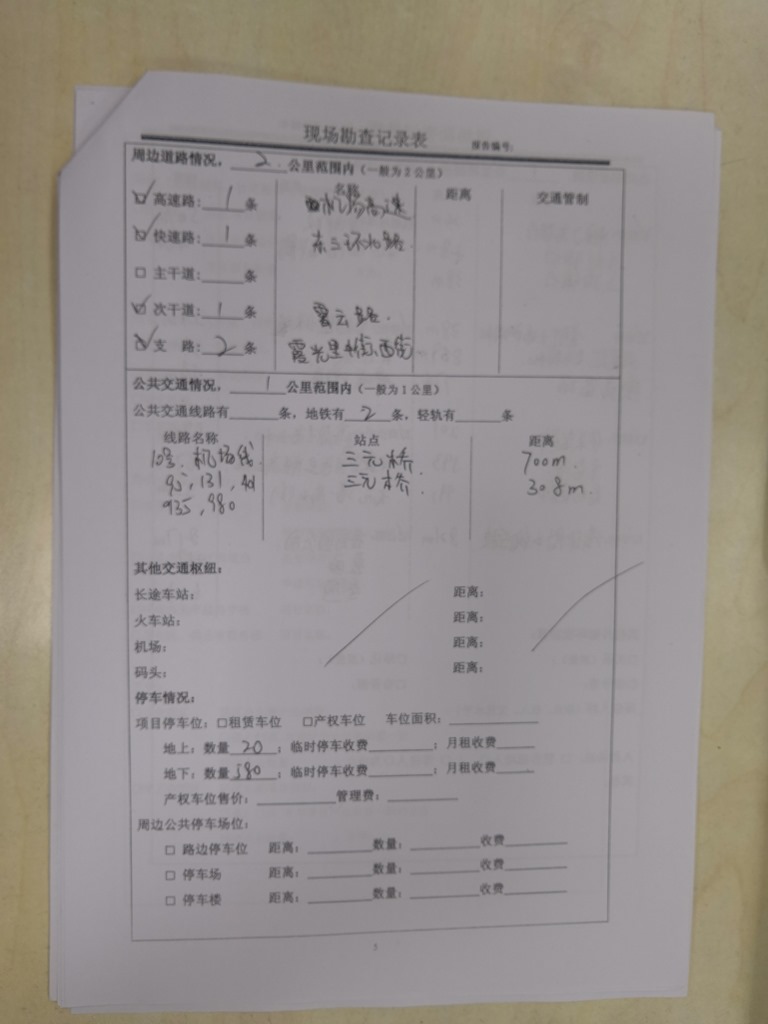 现场勘查记录表 报告编号:
周边道路情况，2公里范围内（一般为2公里）
名称 距离 交通管制
☑ 高速路: 1 条 机场高速
☑ 快速路: 1 条 东三环北路
□ 主干道: 条
☑ 次干道: 1 条 云路
☑ 支 路: 2 条 霞光里 街、西街
公共交通情况，1公里范围内（一般为1公里）
公共交通线路有______条，地铁有 2 条，轻轨有______条
线路名称 站点 距离
10号. 机场线. 三元桥. 700m.
, 131, 401 三元桥. 308m.
935, 980
其他交通枢纽：
长途车站： 距离：
火车站： 距离：
机场： 距离：
码头： 距离：
停车情况：
项目停车位：□租赁车位 □产权车位 车位面积：______
地上：数量 20 ；临时停车收费______；月租收费______
地下：数量 580 ；临时停车收费______；月租收费______
产权车位售价：______管理费：______
周边公共停车场位：
□ 路边停车位 距离：______数量：______收费______
□ 停车场 距离：______数量：______收费______
□ 停车楼 距离：______数量：______收费______